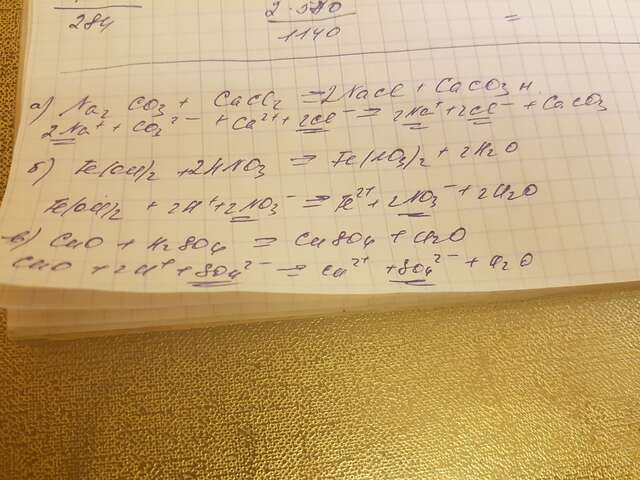 284
2·580
1140
=
а) Na2 CO3 + CaCl2 = 2NaCl + CaCO3 н.
2Na⁺ + CO3²⁻ + Ca²⁺ + 2Cl⁻ = 2Na⁺ + 2Cl⁻ + CaCO3
б) Fe(OH)2 + 2HNO3 = Fe(NO3)2 + 2H2O
Fe(OH)2 + 2H⁺ + 2NO3⁻ = Fe²⁺ + 2NO3⁻ + 2H2O
в) CuO + H2SO4 = CuSO4 + H2O
CuO + 2H⁺ + SO4²⁻ = Cu²⁺ + SO4²⁻ + H2O